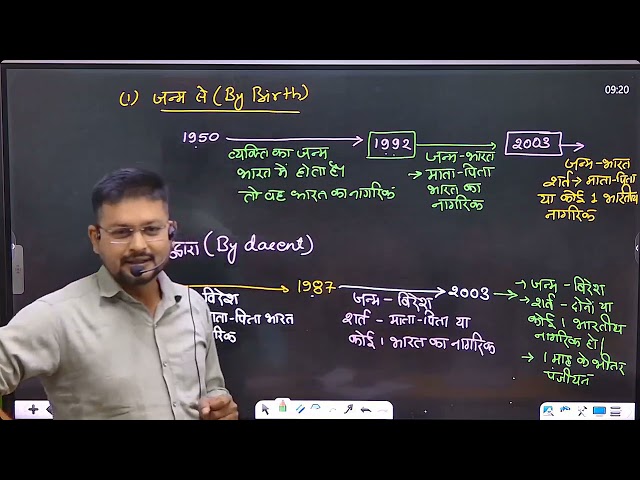 09:20
(1) जन्म से (By Birth)
1950 → 1992 → 2003 →
व्यक्ति का जन्म
भारत में होता है।
तो वह भारत का नागरिक
जन्म - भारत
→ माता-पिता
भारत का
नागरिक
जन्म - भारत
शर्त → माता-पिता
या कोई 1 भारतीय
नागरिक
द्वारा (By dacent)
→ 1987 → 2003
विदेश
माता-पिता भारत
रिक
जन्म - विदेश
शर्त - माता-पिता या
कोई 1 भारत का नागरिक
→ जन्म - विदेश
→ शर्त - दोनों या
कोई 1 भारतीय
नागरिक हो।
→ 1 माह के भीतर
पंजीयन